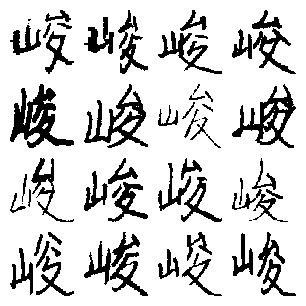 峻峻峻峻
峻峻峻峻
峻峻峻峻
峻峻峻峻